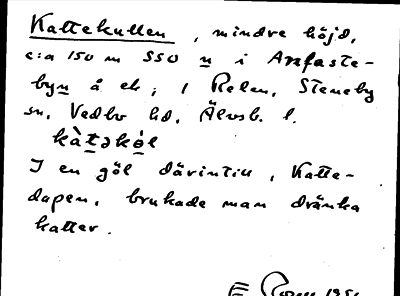 Kattekullen, mindre höjd,
c:a 150 m SSO n i Anfaste-
byn å ek; i Relen, Steneby
sn, Vedbo hd, Älvsb. l.
kàtəkòl
I en göl därintill, Katte-
dapen, brukade man dränka
katter.
E